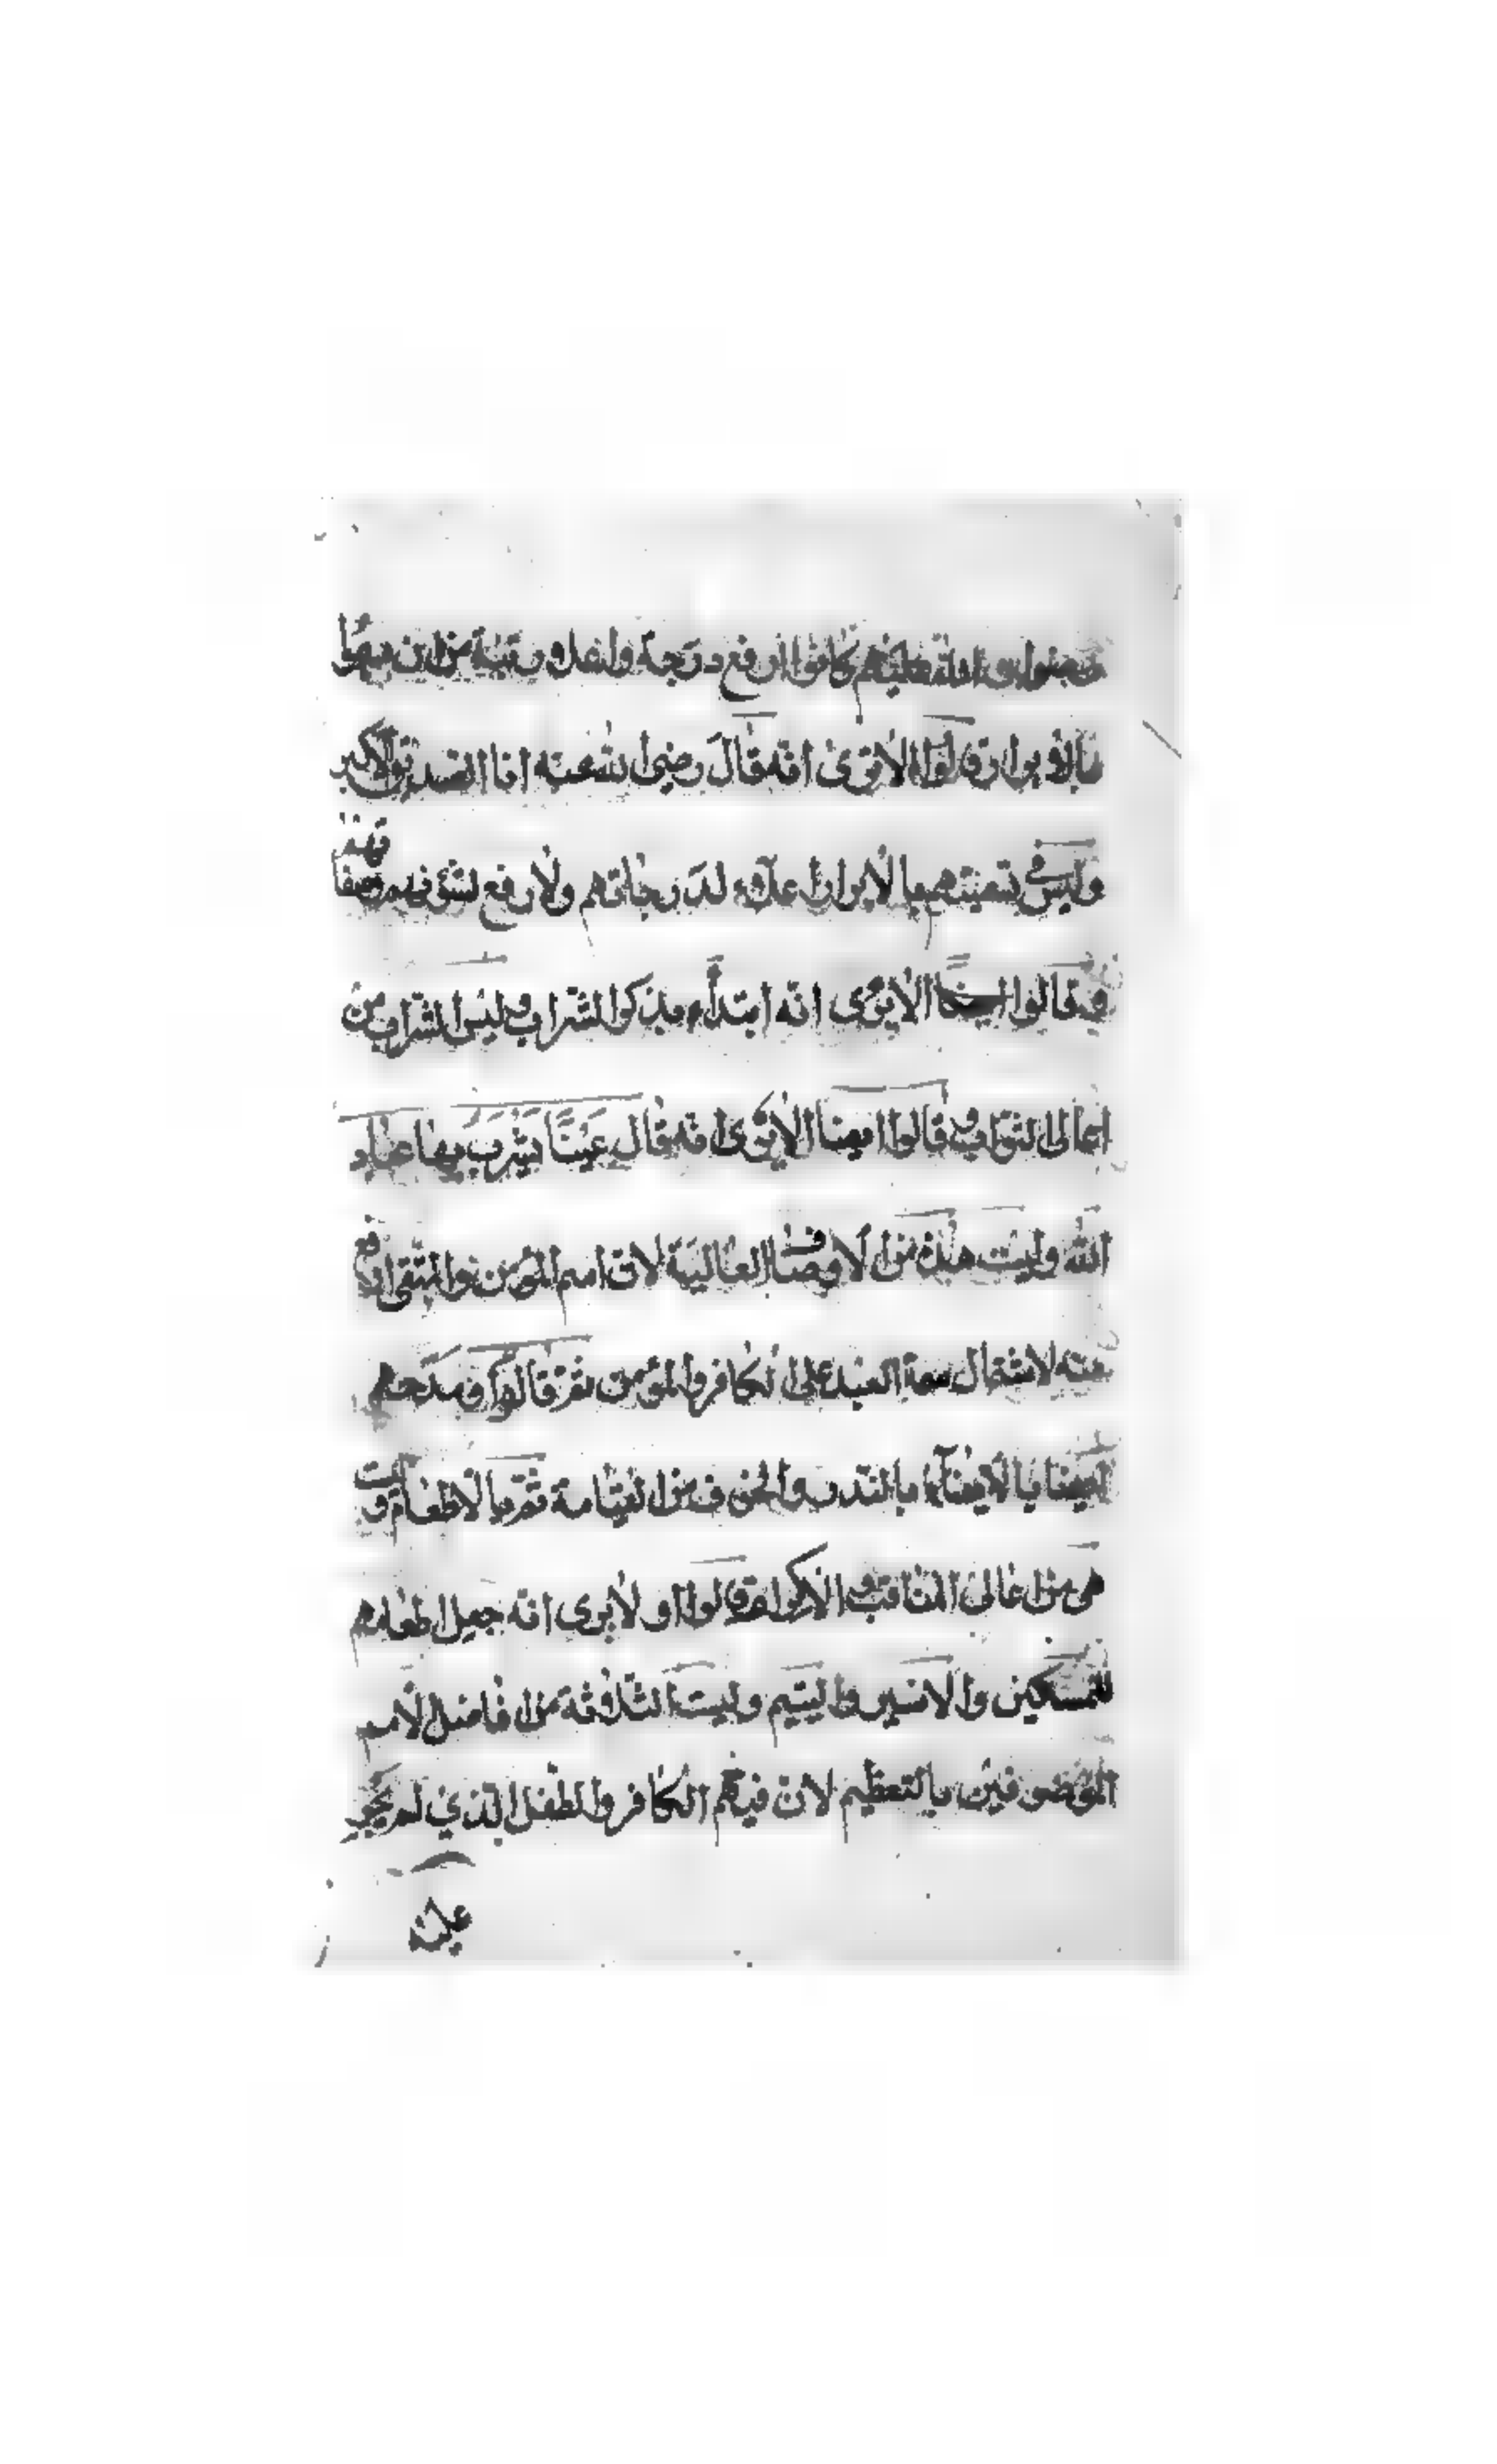 رضوان الله عليهم كانوا ارفع درجة واعلى رتبة من ان يسموا
بالابرار قالوا الا ترى انه قال رضي الله عنه انا الصديق الاكبر
وليس في تسميتهم بالابرار اعلاء لدرجاتهم ولا رفع لشؤونهم
وقالوا ايضا الا ترى انه ابتداء بذكر الشراب وليس الشراب من
اعالي الثواب وقالوا ايضا الا ترى انه قال عينا يشرب بها عباد
الله وليست هذه من الاوصاف العالية لان اسم المؤمن والمتقي ارفع
منه لاشتمال سمة العبد على الكافر والمؤمن ثم قالوا ومدحهم
ايضا بالايفاء بالنذر والخوف من القيامة ثم بالاطعام وليست
هي من عالي المناقب والاكرام وقالوا او لا يرى انه جعل اطعامهم
للمسكين والاسير واليتيم وليست الثلاثة من فاضل الامم
الموصوفين بالتعظيم لان فيهم الكافر والطفل الذي لم يجر
عليه